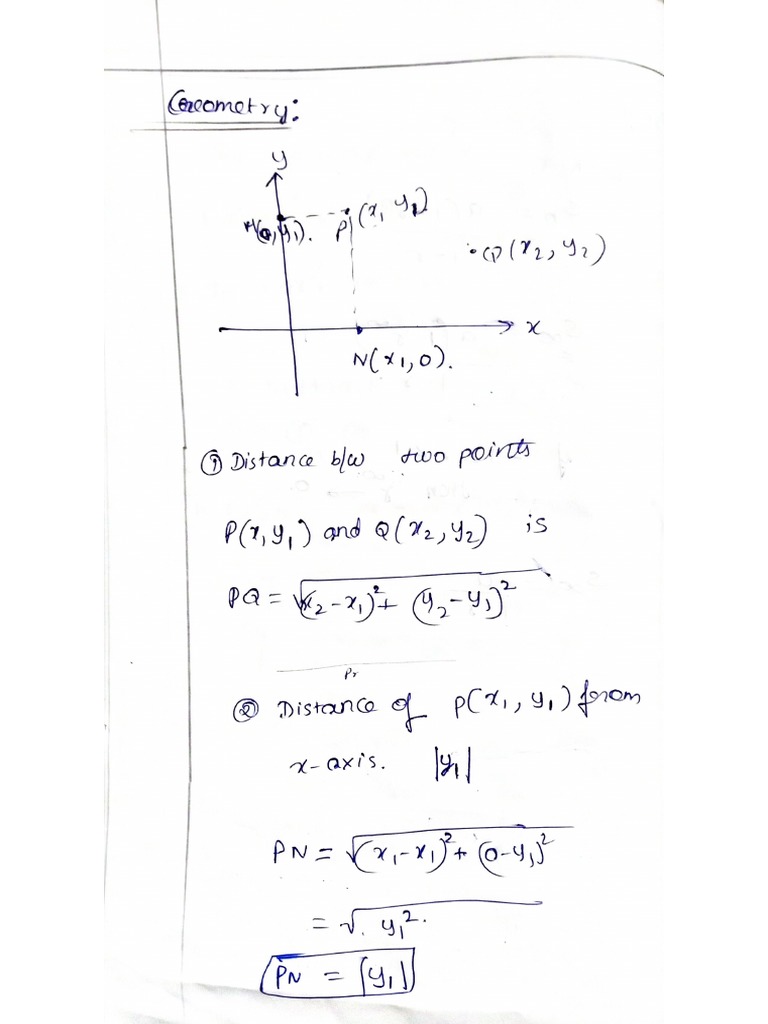 Geometry:
y
M(0, y₁). P (x₁ y₁)
Q(x₂, y₂)
x
N(x₁, 0).
① Distance b/w two points
P(x, y₁) and Q(x₂, y₂) is
PQ = √(x₂-x₁)²+ (y₂-y₁)²
Pr
② Distance of P(x₁, y₁) from
x-axis. |y₁|
PN = √(x₁-x₁)²+ (0-y₁)²
= √. y₁².
PN = |y₁|